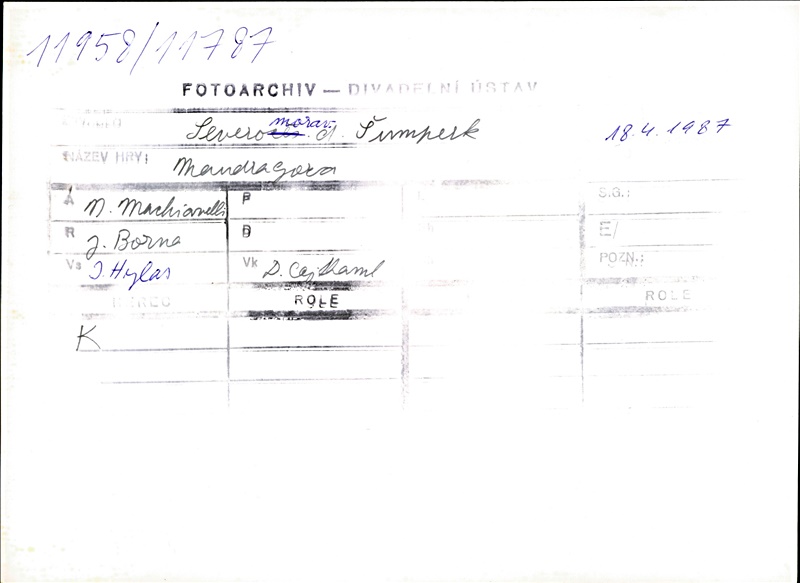 11958/11787
FOTOARCHIV — DIVADELNÍ ÚSTAV
morav.
Severo d. Šumperk 18.4.1987
NÁZEV HRY: Mandragora
A N. Machiavelli P S.G.:
R J. Borna D E/
Vs J. Hylas Vk D. Cajthaml POZN.:
HEREC ROLE ROLE
K